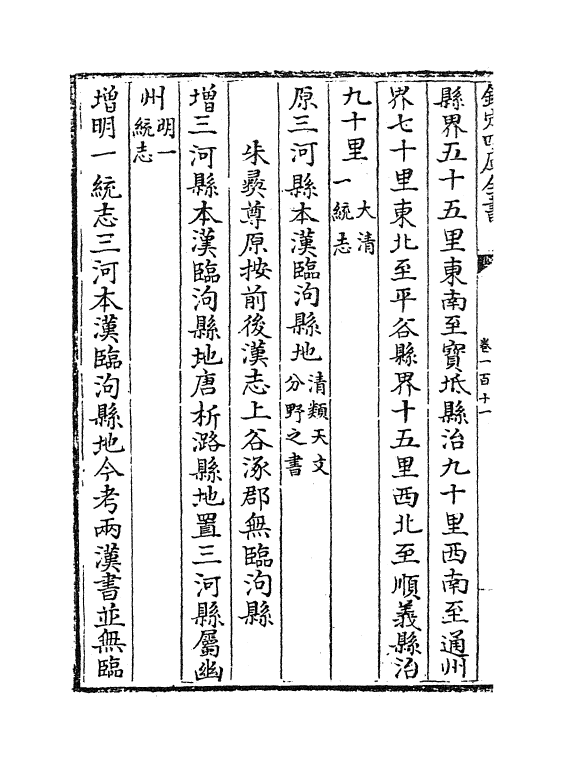 欽定四庫全書
卷一百十一
縣界五十五里東南至寶坻縣治九十里西南至通州
界七十里東北至平谷縣界十五里西北至順義縣治
九十里大清一統志
原三河縣本漢臨泃縣地清類天文分野之書
朱彞尊原按前後漢志上谷涿郡無臨泃縣
增三河縣本漢臨泃縣地唐析潞縣地置三河縣屬幽
州明一統志
增明一統志三河本漢臨泃縣地今考兩漢書並無臨